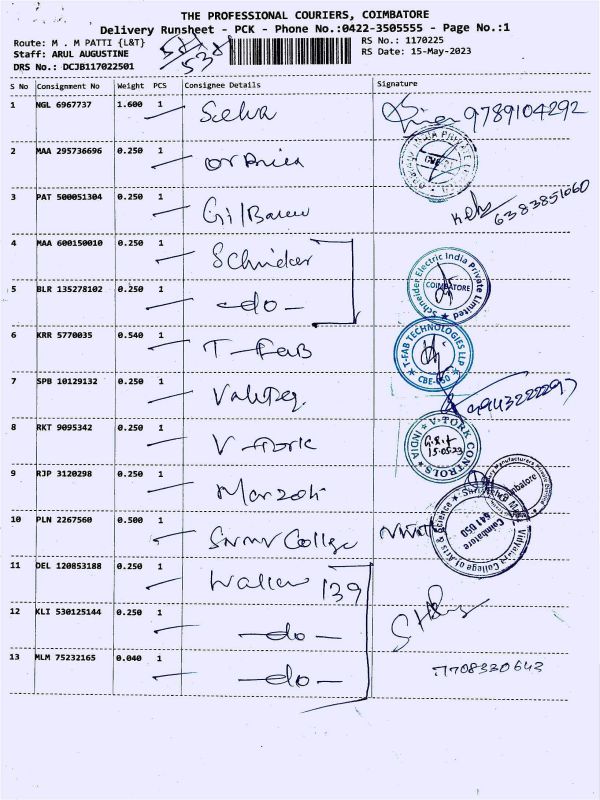 THE PROFESSIONAL COURIERS, COIMBATORE
Delivery Runsheet - PCK - Phone No.:0422-3505555 - Page No.:1
Route: M . M PATTI {L&T}
RS No.: 1170225
Staff: ARUL AUGUSTINE
RS Date: 15-May-2023
DRS No.: DCJB117022501
538
S No Consignment No Weight PCS Consignee Details Signature
1 NGL 6967737 1.600 1 Selva 9789104292
2 MAA 295736696 0.250 1
3 PAT 500051304 0.250 1 6383851060
4 MAA 600150010 0.250 1 Schnider
Schneider Electric India Private Limited
COIMBATORE
5 BLR 135278102 0.250 1 -do-
6 KRR 5770035 0.540 1 T-FAB
T-FAB TECHNOLOGIES LLP
CBE-050
7 SPB 10129132 0.250 1
8 RKT 9095342 0.250 1 V-Tork
V-TORK CONTROLS
INDIA
15.05.23
9 RJP 3120298 0.250 1 Marzoli
10 PLN 2267560 0.500 1 College
Vidyalaya College of Arts & Science
Coimbatore
641 050
11 DEL 120853188 0.250 1 139
12 KLI 530125144 0.250 1 -do-
13 MLM 75232165 0.040 1 -do- 7708330643